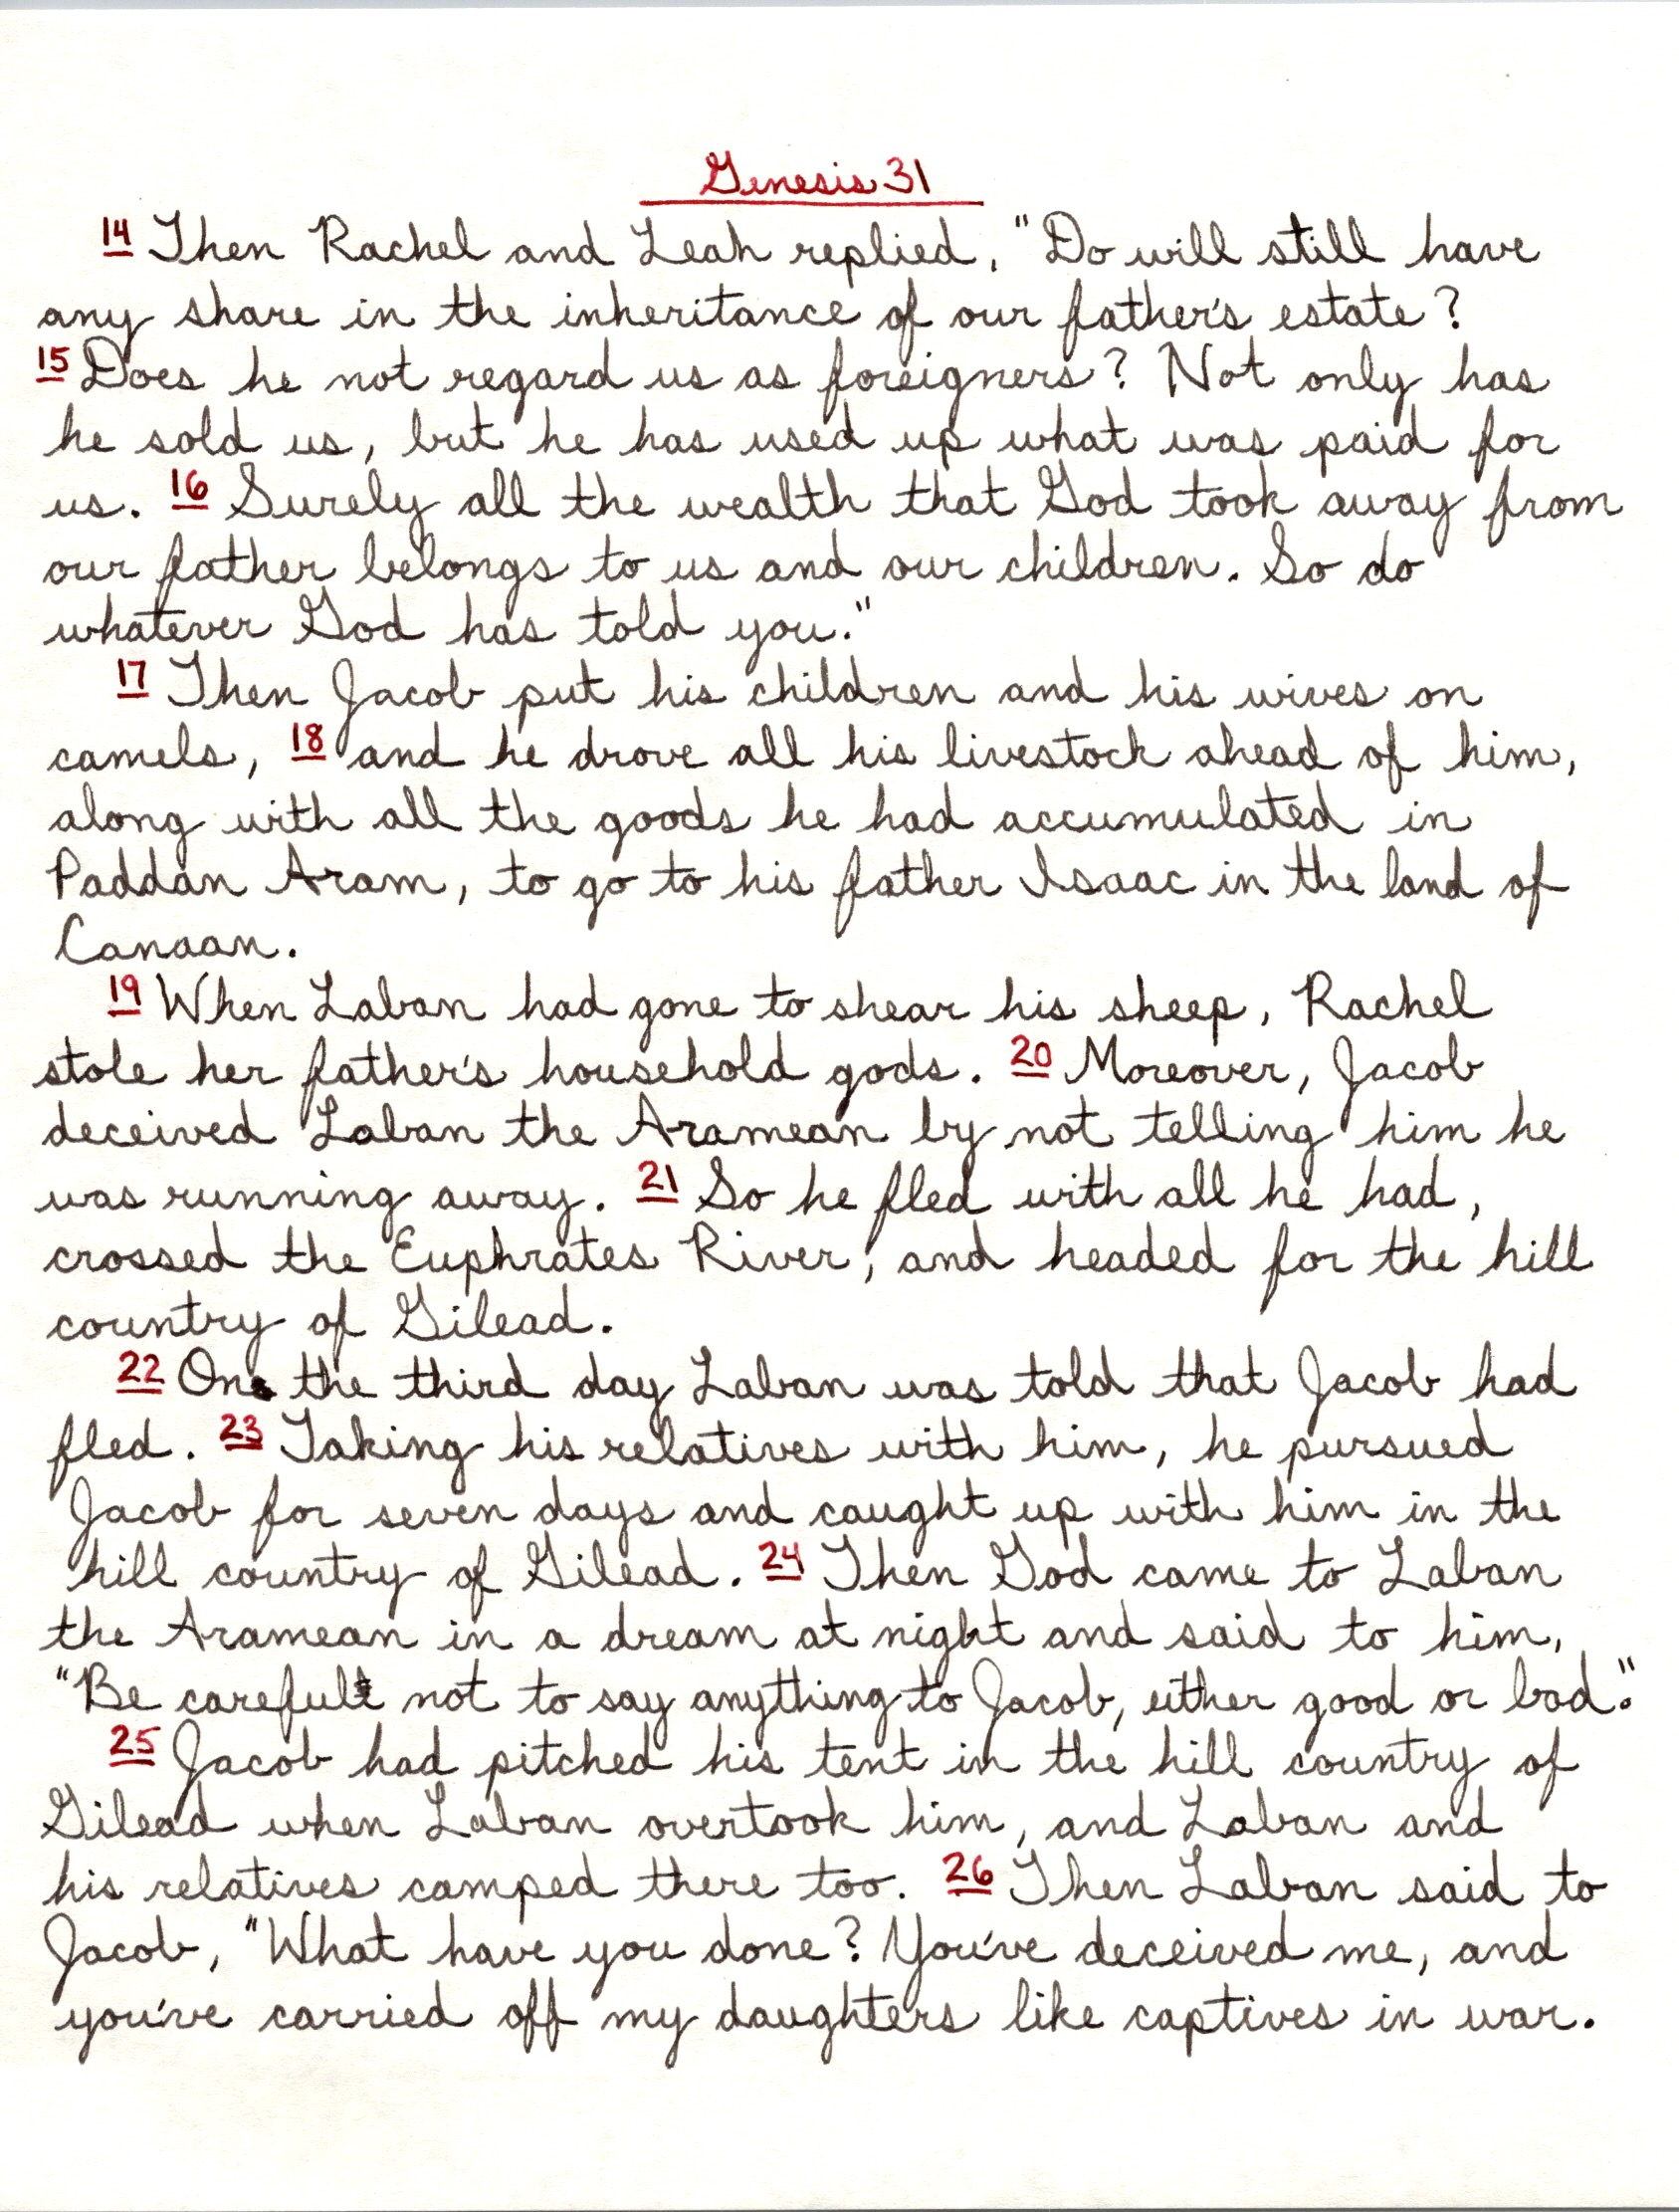 Genesis 31
14 Then Rachel and Leah replied, "Do will still have
any share in the inheritance of our father's estate?
15 Does he not regard us as foreigners? Not only has
he sold us, but he has used up what was paid for
us. 16 Surely all the wealth that God took away from
our father belongs to us and our children. So do
whatever God has told you."
17 Then Jacob put his children and his wives on
camels, 18 and he drove all his livestock ahead of him,
along with all the goods he had accumulated in
Paddan Aram, to go to his father Isaac in the land of
Canaan.
19 When Laban had gone to shear his sheep, Rachel
stole her father's household gods. 20 Moreover, Jacob
deceived Laban the Aramean by not telling him he
was running away. 21 So he fled with all he had,
crossed the Euphrates River, and headed for the hill
country of Gilead.
22 On the third day Laban was told that Jacob had
fled. 23 Taking his relatives with him, he pursued
Jacob for seven days and caught up with him in the
hill country of Gilead. 24 Then God came to Laban
the Aramean in a dream at night and said to him,
"Be careful not to say anything to Jacob, either good or bad."
25 Jacob had pitched his tent in the hill country of
Gilead when Laban overtook him, and Laban and
his relatives camped there too. 26 Then Laban said to
Jacob, "What have you done? You've deceived me, and
you've carried off my daughters like captives in war.